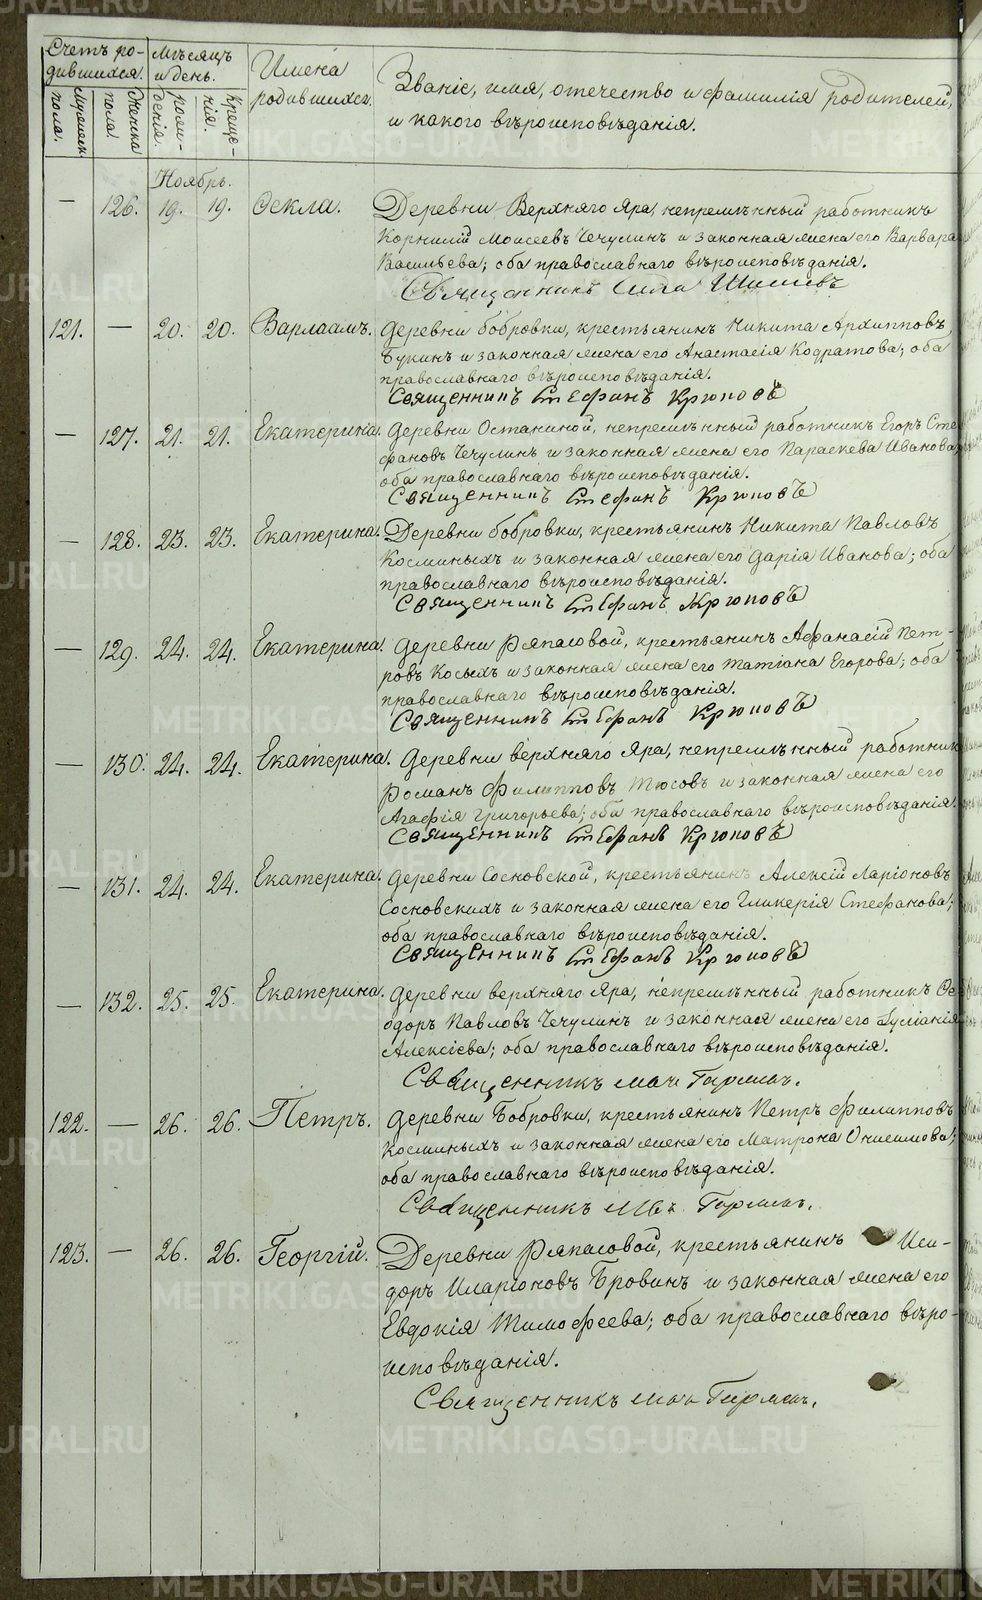 Счетъ ро-
дившихся.
Мѣсяцъ
и день.
Имена
родившихся.
Званіе, имя, отечество и фамилія родителей,
и какого вѣроисповѣданія.
Мужеск.
пола.
Женска
пола.
рож-
денія.
креще-
нія.
Ноябрь.
— 126. 19. 19. Ѳекла. Деревни Верхняго Яра, непремѣнный работникъ
Корнилій Моисеевъ Чечулинъ и законная жена его Варвара
Васильева; оба православнаго вѣроисповѣданія.
Священникъ
121. — 20. 20. Варлаамъ. Деревни Бобровки, крестьянинъ Никита Архипповъ
Букинъ и законная жена его Анастасія Кодратова; оба
православнаго вѣроисповѣданія.
Священникъ Стефанъ Крюповъ
— 127. 21. 21. Екатерина. Деревни Останиной, непремѣнный работникъ Егоръ Сте
фановъ Чечулинъ и законная жена его Параскева Иванова
оба православнаго вѣроисповѣданія.
Священникъ Стефанъ Крюповъ
— 128. 23. 23. Екатерина. Деревни Бобровки, крестьянинъ Никита Павловъ
Косминыхъ и законная жена его Дарія Иванова; оба
православнаго вѣроисповѣданія.
Священникъ Стефанъ Крюповъ
— 129. 24. 24. Екатерина. Деревни Ряпасовой, крестьянинъ Афанасій Пет-
ровъ Косыхъ и законная жена его Татіана Егорова; оба
православнаго вѣроисповѣданія.
Священникъ Стефанъ Крюповъ
— 130. 24. 24. Екатерина. Деревни Верхняго Яра, непремѣнный работник
Романъ Филипповъ Тюсовъ и законная жена его
Агафія Григорьева; оба православнаго вѣроисповѣданія.
Священникъ Стефанъ Крюповъ
— 131. 24. 24. Екатерина. Деревни Сосновской, крестьянинъ Алексій Ларіоновъ
Сосновскихъ и законная жена его Гликерія Стефанова;
оба православнаго вѣроисповѣданія.
Священникъ Стефанъ Крюповъ
— 132. 25. 25. Екатерина. Деревни Верхняго Яра, непремѣнный работникъ Ѳе
одоръ Павловъ Чечулинъ и законная жена его Іуліанія
Алексіева; оба православнаго вѣроисповѣданія.
Священникъ
122. — 26. 26. Петръ. Деревни Бобровки, крестьянинъ Петръ Филипповъ
Косминыхъ и законная жена его Матрона Онисимова;
оба православнаго вѣроисповѣданія.
Священникъ
123. — 26. 26. Георгій. Деревни Ряпасовой, крестьянинъ Иси-
доръ Иларіоновъ Бровинъ и законная жена его
Евдокія Тимофеева; оба православнаго вѣро-
исповѣданія.
Священникъ
METRIKI.GASO-URAL.RU